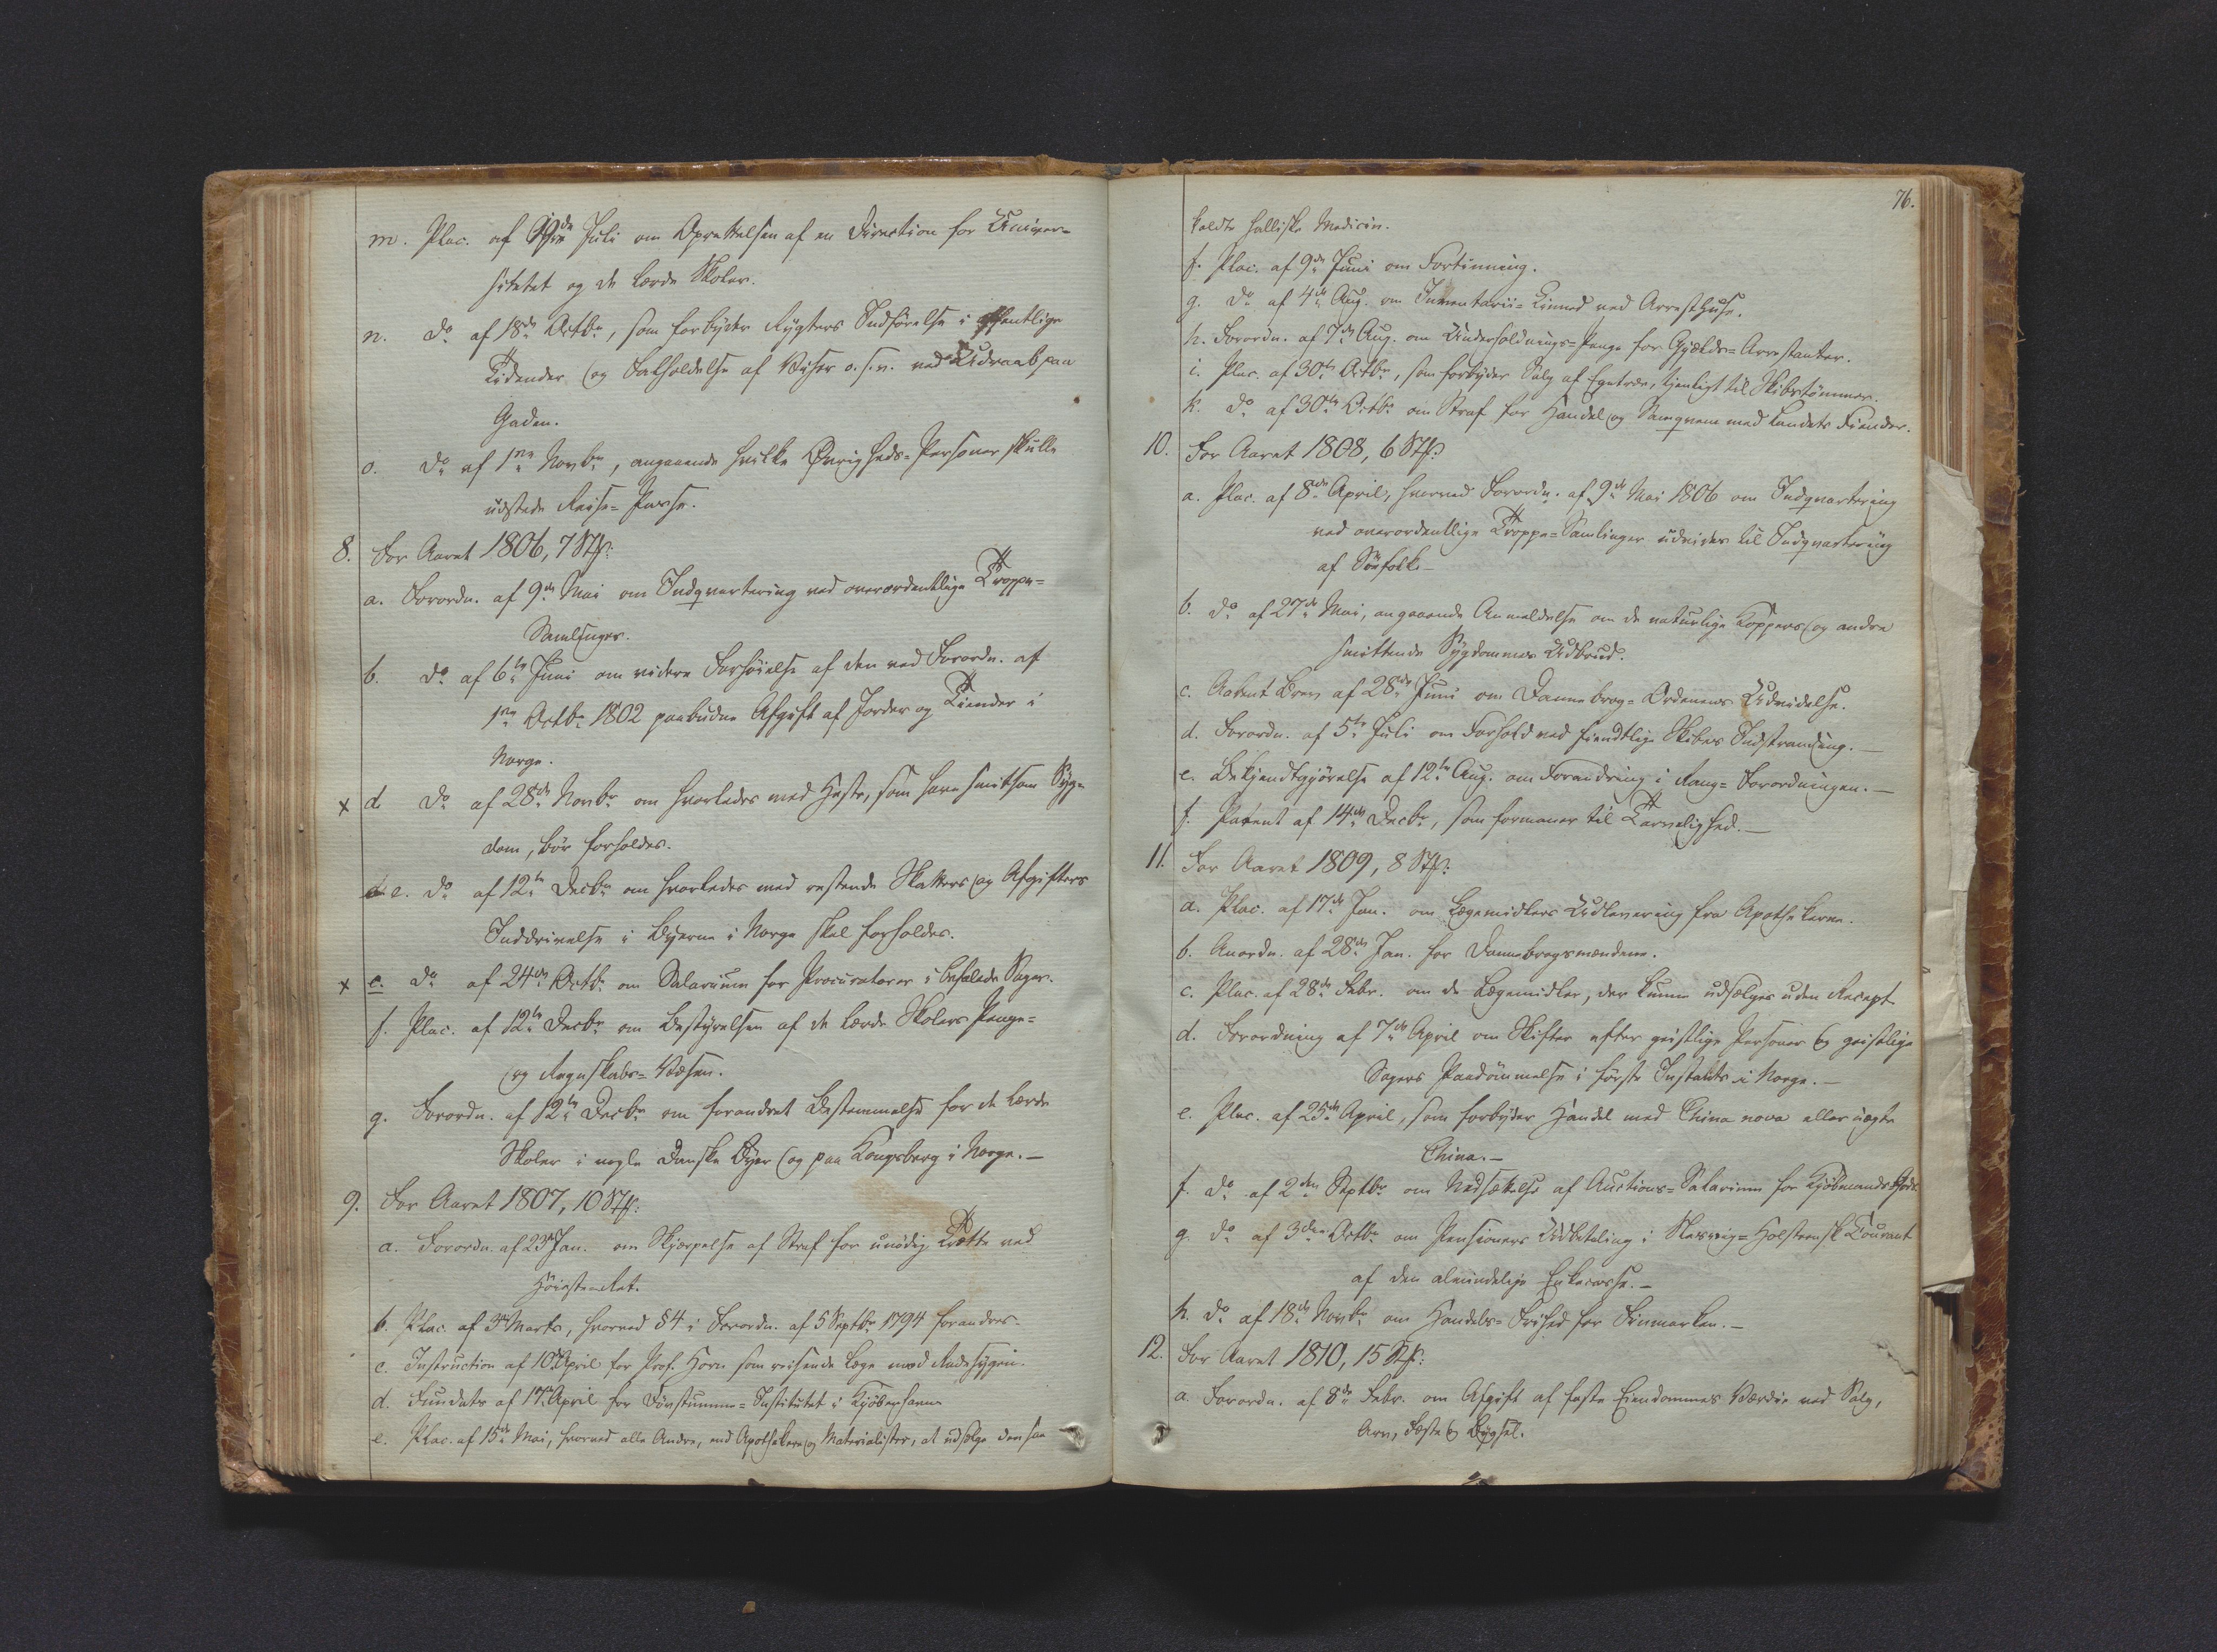 m. Plac. af 19de Juli om Oprettelsen af en Direction for Univer-
sitetet og de lærde Skoler.
n. Do af 18de Octbr, som forbyder Rygters Indførelse i offentlige
Tidender og Falholdelse af Viser o. s. v. ved Udraab paa
Gaden.
o. Do af 1ste Novbr, angaaende hvilke Øvrigheds-Personer skulle
udstede Reise-Passe.
8. For Aaret 1806, 7 Stk:
a. Forordn. af 9de Mai om Indqvartering ved overordentlige Troppe-
Samlinger.
b. Do af 6te Juni om videre Forhøielse af den ved Forordn. af
1ste Octbr 1802 paabudne Afgift af Jorder og Tiender i
Norge.
x d Do af 28de Novbr om hvorledes med Heste, som have smitsom Syg-
dom, bør forholdes.
e. Do af 12te Decbr om hvorledes med restende Skatters og Afgifters
Inddrivelse i Byerne i Norge skal forholdes.
x c. Do af 24de Octbr om Salarium for Procuratorer i befalede Sager.
f. Plac. af 12te Decbr om Bestyrelsen af de lærde Skolers Penge-
og Regnskabs-Væsen.
g. Forordn. af 12te Decbr om forandret Bestemmelse for de lærde
Skoler i nogle Danske Byer og paa Kongsberg i Norge.-
9. For Aaret 1807, 10 Stk:
a. Forordn. af 23de Jan. om Skjærpelse af Straf for unødig Trætte ved
Høiesteret.
b. Plac. af 3die Marts, hvorved §4 i Forordn. af 5 Septbr 1794 forandres.
c. Instruction af 10de April for Prof. Horn som reisende Læge mod Radesygen.
d. Fundats af 17de April for Døvstumme-Institutet i Kjøbenhavn
e. Plac. af 15de Mai, hvorved alle Andre, end Apothekere og Materialister, at udsælge den saa
76.
kaldte hallske Medicin.
f. Plac. af 9de Juni om Fortinning.
g. Do af 4de Aug. om Inventarii- ved Arresthuse.
h. Forordn. af 7de Aug. om Underholdnings-Penge for Gjælds-Arrestanter.
i. Plac. af 30te Octbr, som forbyder Salg af Egetræer, tjenligt til Skibstømmer.
k. Do af 30te Octbr om Straf for Handel og Samqvem med Landets Fiender.
10. For Aaret 1808, 6 Stk:
a. Plac. af 8de April, hvorved Forordn. af 9de Mai 1806 om Indqvartering
ved overordentlige Troppe-Samlinger udvides til Indqvartering
af Søefolk-
b. Do af 27de Mai, angaaende Anmeldelse om de naturlige Koppers og andre
smittende Sygdommes Udbrud.
c. Aabent Brev af 28de Juni om Dannebrog-Ordenens Udvidelse.
d. Forordn. af 5te Juli om Forhold ved fiendtlige Skibes Indstranding.-
e. Bekjendtgjørelse af 12te Aug. om Forandring i Rang-Forordningen.-
f. Patent af 14de Decbr, som formaner til Tarvelighed.-
11. For Aaret 1809, 8 Stk:
a. Plac. af 17de Jan. om Lægemidlers Udlevering fra Apothekerne.
b. Anordn. af 28de Jan. for Dannebrogsmændene.
c. Plac. af 28de Febr. om de Lægemidler, der kunne udsælges uden Recept
d. Forordning af 7de April om Skifter efter geistlige Personer og geistlige
Sagers Paadømmelse i første Instants i Norge.-
e. Plac. af 25de April, som forbyder Handel med China nova eller uægte
China.-
f. Do af 2den Septbr om Nedsættelse af Auctions-Salarium for Kjøbmands Gods
g. Do af 3die Octbr om Pensioners Udbetaling i Slesvig-Holsteensk Courant
af den almindelige Enkecasse.-
h. Do af 18de Novbr om Handels-Frihed for Finmarken.-
12. For Aaret 1810, 15 Stk:
a. Forordn. af 8de Febr. om Afgift af faste Eiendommes Værdie ved Salg,
Arv, Fæste og Bygsel.